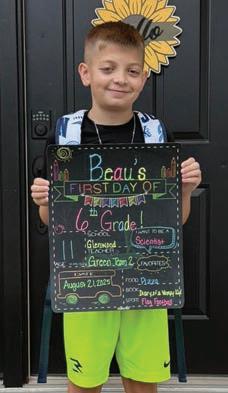 Hello
Beau's
FIRST DAY OF
6th Grade!
SCHOOL
Glenwood
TEACHER
Green Team 2
11
AGE
I WANT TO BE A
Scientist
DATE
August 21, 2025
FAVORITES
FOOD Pizza
BOOK Diary of a Wimpy Kid
SPORT Flag Football